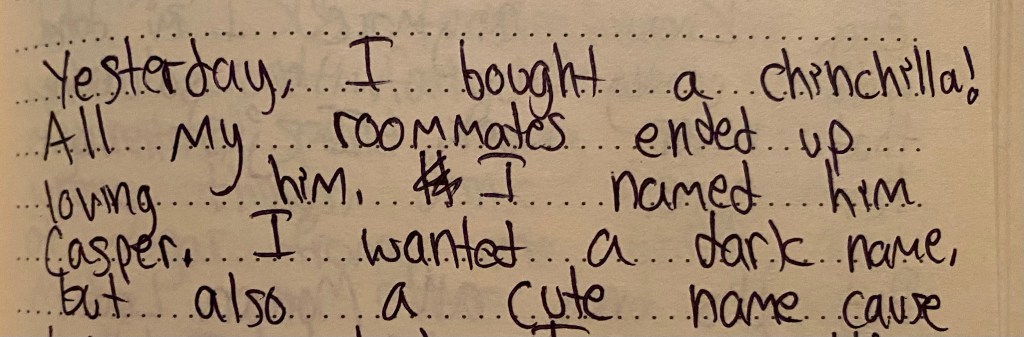 Yesterday, I bought a chinchilla!
All my roommates ended up
loving him. I named him
Casper. I wanted a dark name,
but also a cute name cause